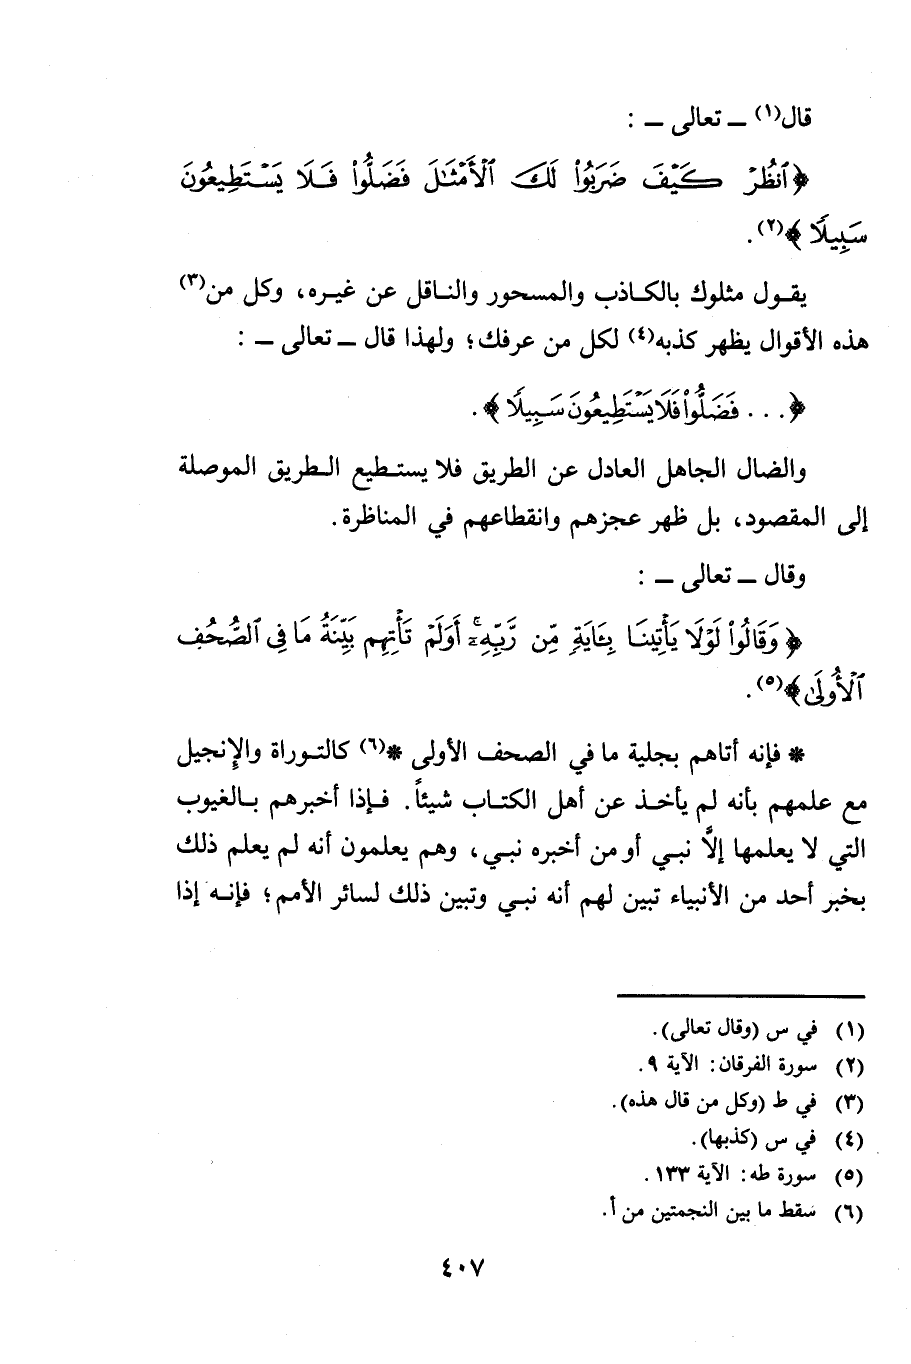 قال(١) ــ تعالى ــ :
﴿ٱنظُرْ كَيْفَ ضَرَبُوا۟ لَكَ ٱلْأَمْثَٰلَ فَضَلُّوا۟ فَلَا يَسْتَطِيعُونَ
سَبِيلًا﴾(٢).
يقول مثلوك بالكاذب والمسحور والناقل عن غيره، وكل من(٣)
هذه الأقوال يظهر كذبه(٤) لكل من عرفك؛ ولهذا قال ــ تعالى ــ :
﴿. . . فَضَلُّوا۟ فَلَا يَسْتَطِيعُونَ سَبِيلًا﴾.
والضال الجاهل العادل عن الطريق فلا يستطيع الطريق الموصلة
إلى المقصود، بل ظهر عجزهم وانقطاعهم في المناظرة.
وقال ــ تعالى ــ :
﴿وَقَالُوا۟ لَوْلَا يَأْتِينَا بِـَٔايَةٍ مِّن رَّبِّهِۦٓ ۚ أَوَلَمْ تَأْتِهِم بَيِّنَةُ مَا فِى ٱلصُّحُفِ
ٱلْأُولَىٰ﴾(٥).
* فإنه أتاهم بجلية ما في الصحف الأولى *(٦) كالتوراة والإنجيل
مع علمهم بأنه لم يأخذ عن أهل الكتاب شيئاً. فإذا أخبرهم بالغيوب
التي لا يعلمها إلَّا نبي أو من أخبره نبي، وهم يعلمون أنه لم يعلم ذلك
بخبر أحد من الأنبياء تبين لهم أنه نبي وتبين ذلك لسائر الأمم؛ فإنه إذا
(١) في س (وقال تعالى).
(٢) سورة الفرقان: الآية ٩.
(٣) في ط (وكل من قال هذه).
(٤) في س (كذبها).
(٥) سورة طه: الآية ١٣٣.
(٦) سقط ما بين النجمتين من أ.
٤٠٧